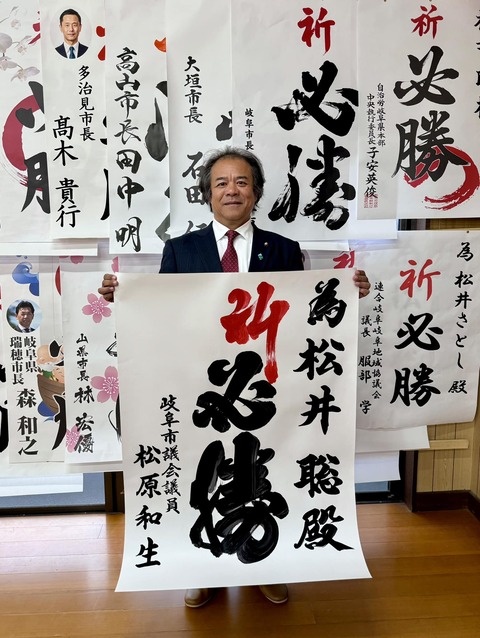 為松井聡殿
祈
必勝
岐阜市議会議員
松原和生
祈
必勝
自治労岐阜県本部
中央執行委員長
子安英俊
祈
必勝
岐阜市長
大垣市長
石田
高山市長田中明
多治見市長
髙木貴行
為松井さとし殿
祈
必勝
連合岐阜岐阜地域協議会
議長 服部学
山県市長 林宏優
岐阜県
瑞穂市長
森和之